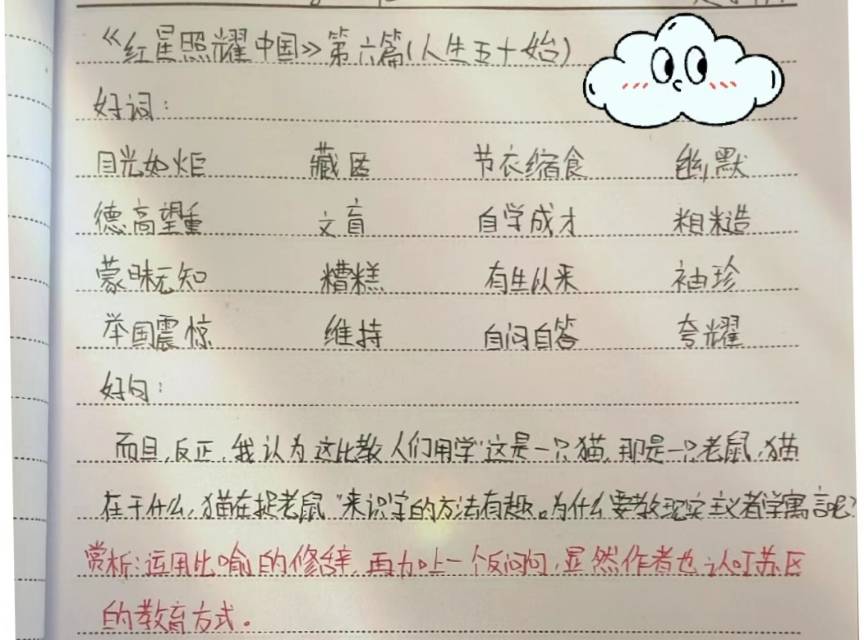 《红星照耀中国》第六篇(人生五十始)
好词:
目光如炬 藏匿 节衣缩食 幽默
德高望重 文盲 自学成才 粗糙
蒙昧无知 糟糕 有生以来 袖珍
举国震惊 维持 自问自答 夸耀
好句:
而且,反正,我认为这比教人们用学“这是一只猫,那是一只老鼠,猫
在干什么,猫在捉老鼠”来识字的方法有趣。为什么要教现实主义者学寓言呢?
赏析:运用比喻的修辞,再加上一个反问句,显然作者也认可苏区
的教育方式。